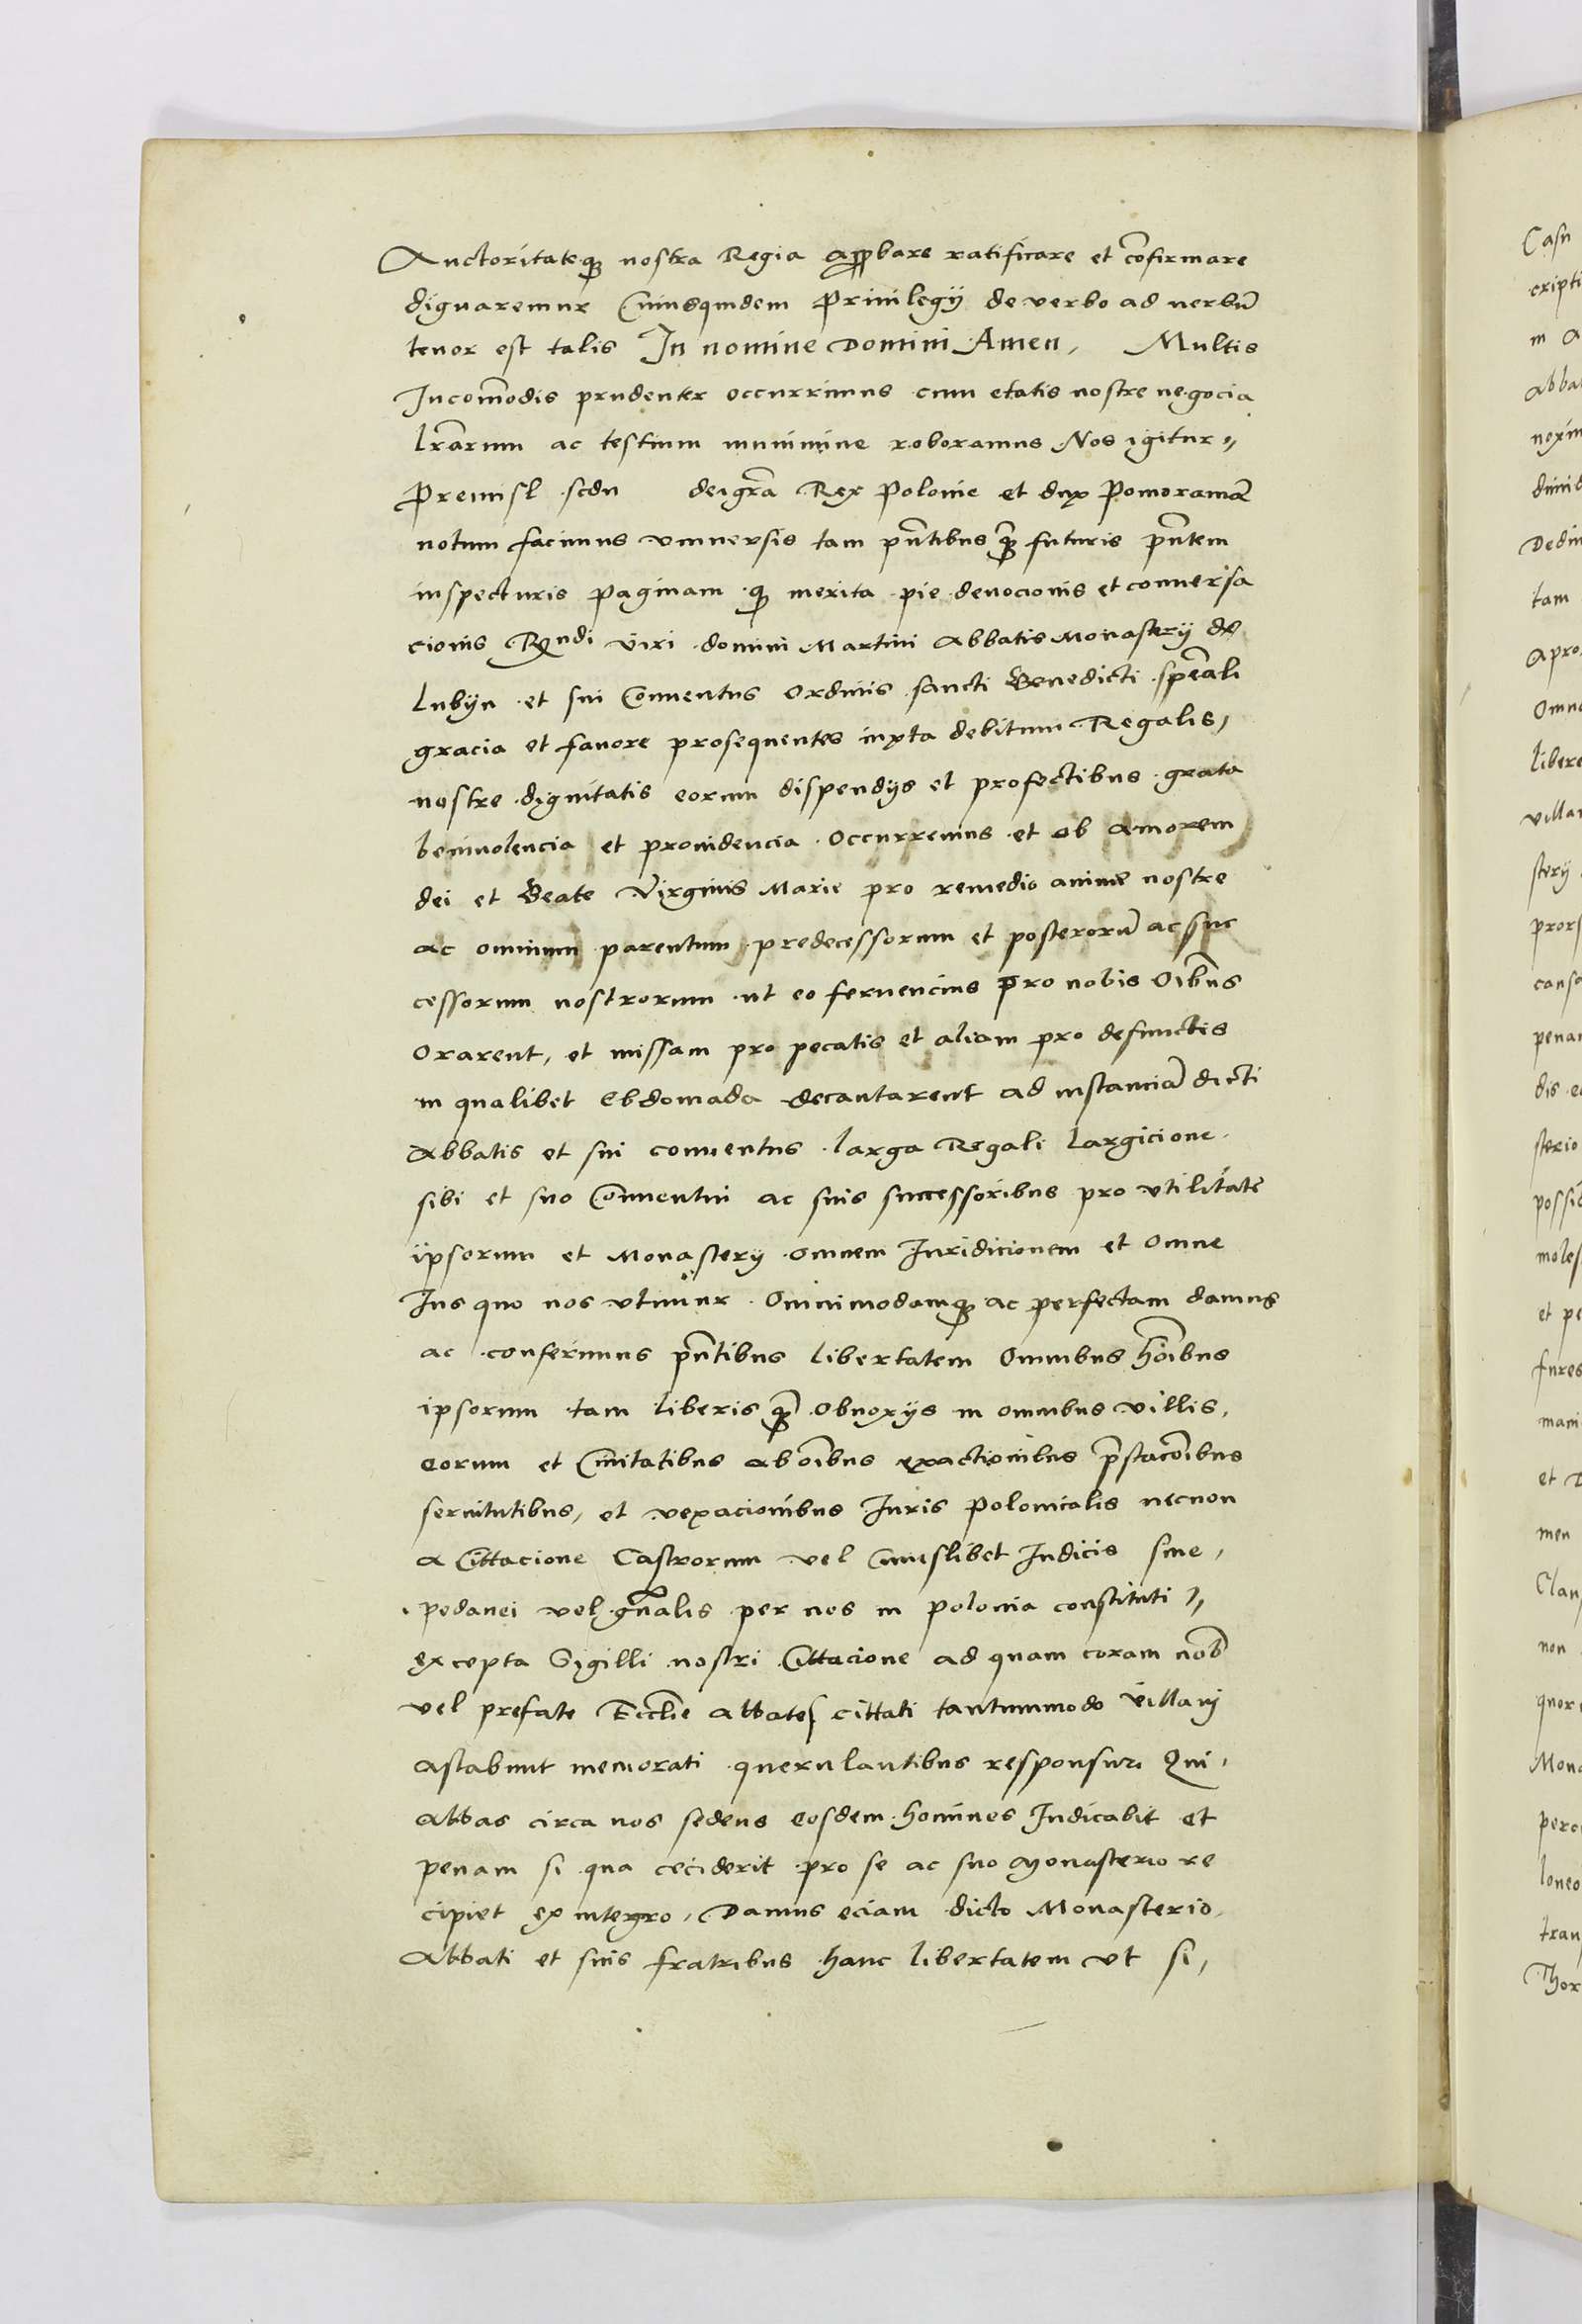 Auctoritateq3 nostra Regia appbare ratificare et cõfirmare
dignaremur Cuiusquidem Priuilegij de verbo ad uerbũ
tenor est talis In nomine Domini Amen, Multis
Incom̃odis prudenter occurrimus cum etatis nostre negocia
lr̃arum ac testium munimine roboramus Nos igitur,,
Premisl scdu deigr̃a Rex Polonie et dux Pomoraniæ
notum facimus vniuersis tam pñtibus q̃3 futuris pñtem
inspecturis paginam q3 merita pie deuocionis et conuersa
cionis Rndi viri domini Martini Abbatis Monasterij de
Lubyn et sui Conuentus Ordinis sancti Benedicti speãli
gracia et fauore prosequentes iuxta debitum Regalis,
nostre dignitatis eorum dispendijs et profectibus grata
beniuolencia et prouidencia Occurremus et ob amorem
dei et Beate Virginis Marie pro remedio anime nostre
ac omnium parentum predecessorum et posterorũ ac suc
cessorum nostrorum ut eo feruencius pro nobis Oibus
Orarent, et missam pro pecatis et aliam pro defunctis
in qualibet Ebdomada decantarent ad instanciã dicti
Abbatis et sui conuentus larga Regali largicione
sibi et suo Conuentui ac suis successoribus pro vtilitate
ipsorum et Monastery omnem Iuridicionem et omne
Ius quo nos vtimur Omnimodamq3 ac perfectam damus
ac conferimus pñtibus libertatem Omnibus hõibus
ipsorum tam liberis q̃3 obnoxijs in omnibus villis,
eorum et Ciuitatibus ab oĩbus exactionibus p̃stacõibus
seruitutibus, et vexacionibus Iuris Polonicalis necnon
a Cittacione Castrorum vel Cuiuslibet Iudicis siue,
pedanei vel gñalis per nos in Polonia constituti,,
excepta Sigilli nostri Cittacione ad quam coram nob
vel prefate Eccl̃ie abbates cittati tantummodo villani
astabunt memorati querulantibus responsuri Qui,
abbas circa nos sedens eosdem homines Iudicabit et
penam si qua ceciderit pro se ac suo Monasterio re
cipiet ex integro, Damus eciam dicto Monasterio
Abbati et suis fratribus hanc libertatem vt si,